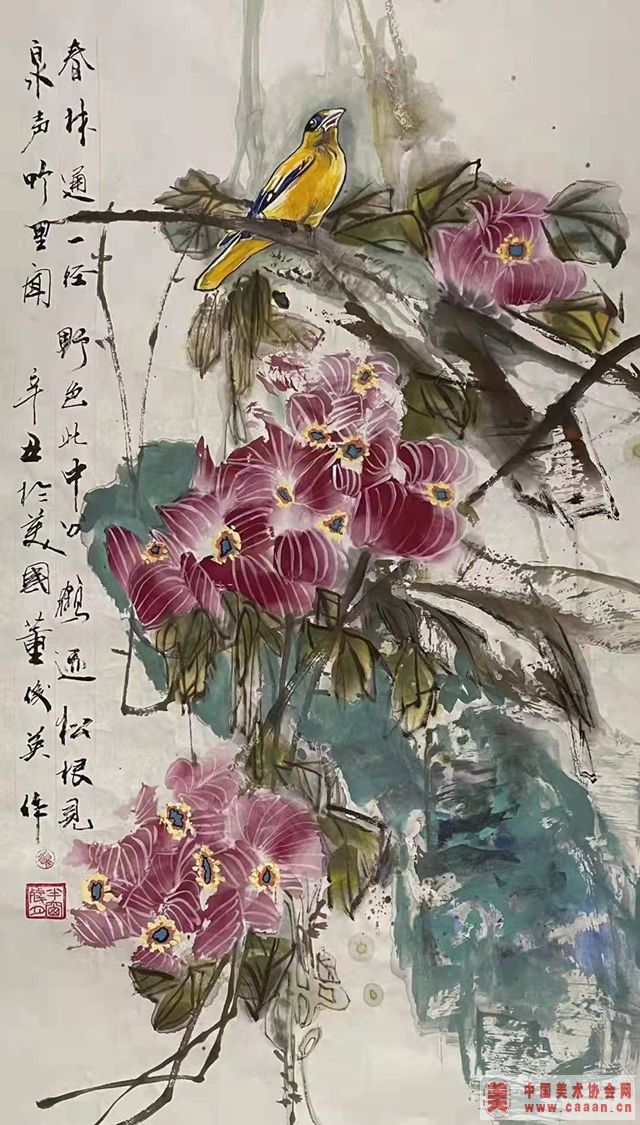 春林通一径野色此中分鹤迹松根见
泉声竹里闻辛丑於美國董俊英作
美 中国美术协会网
www.caaan.cn